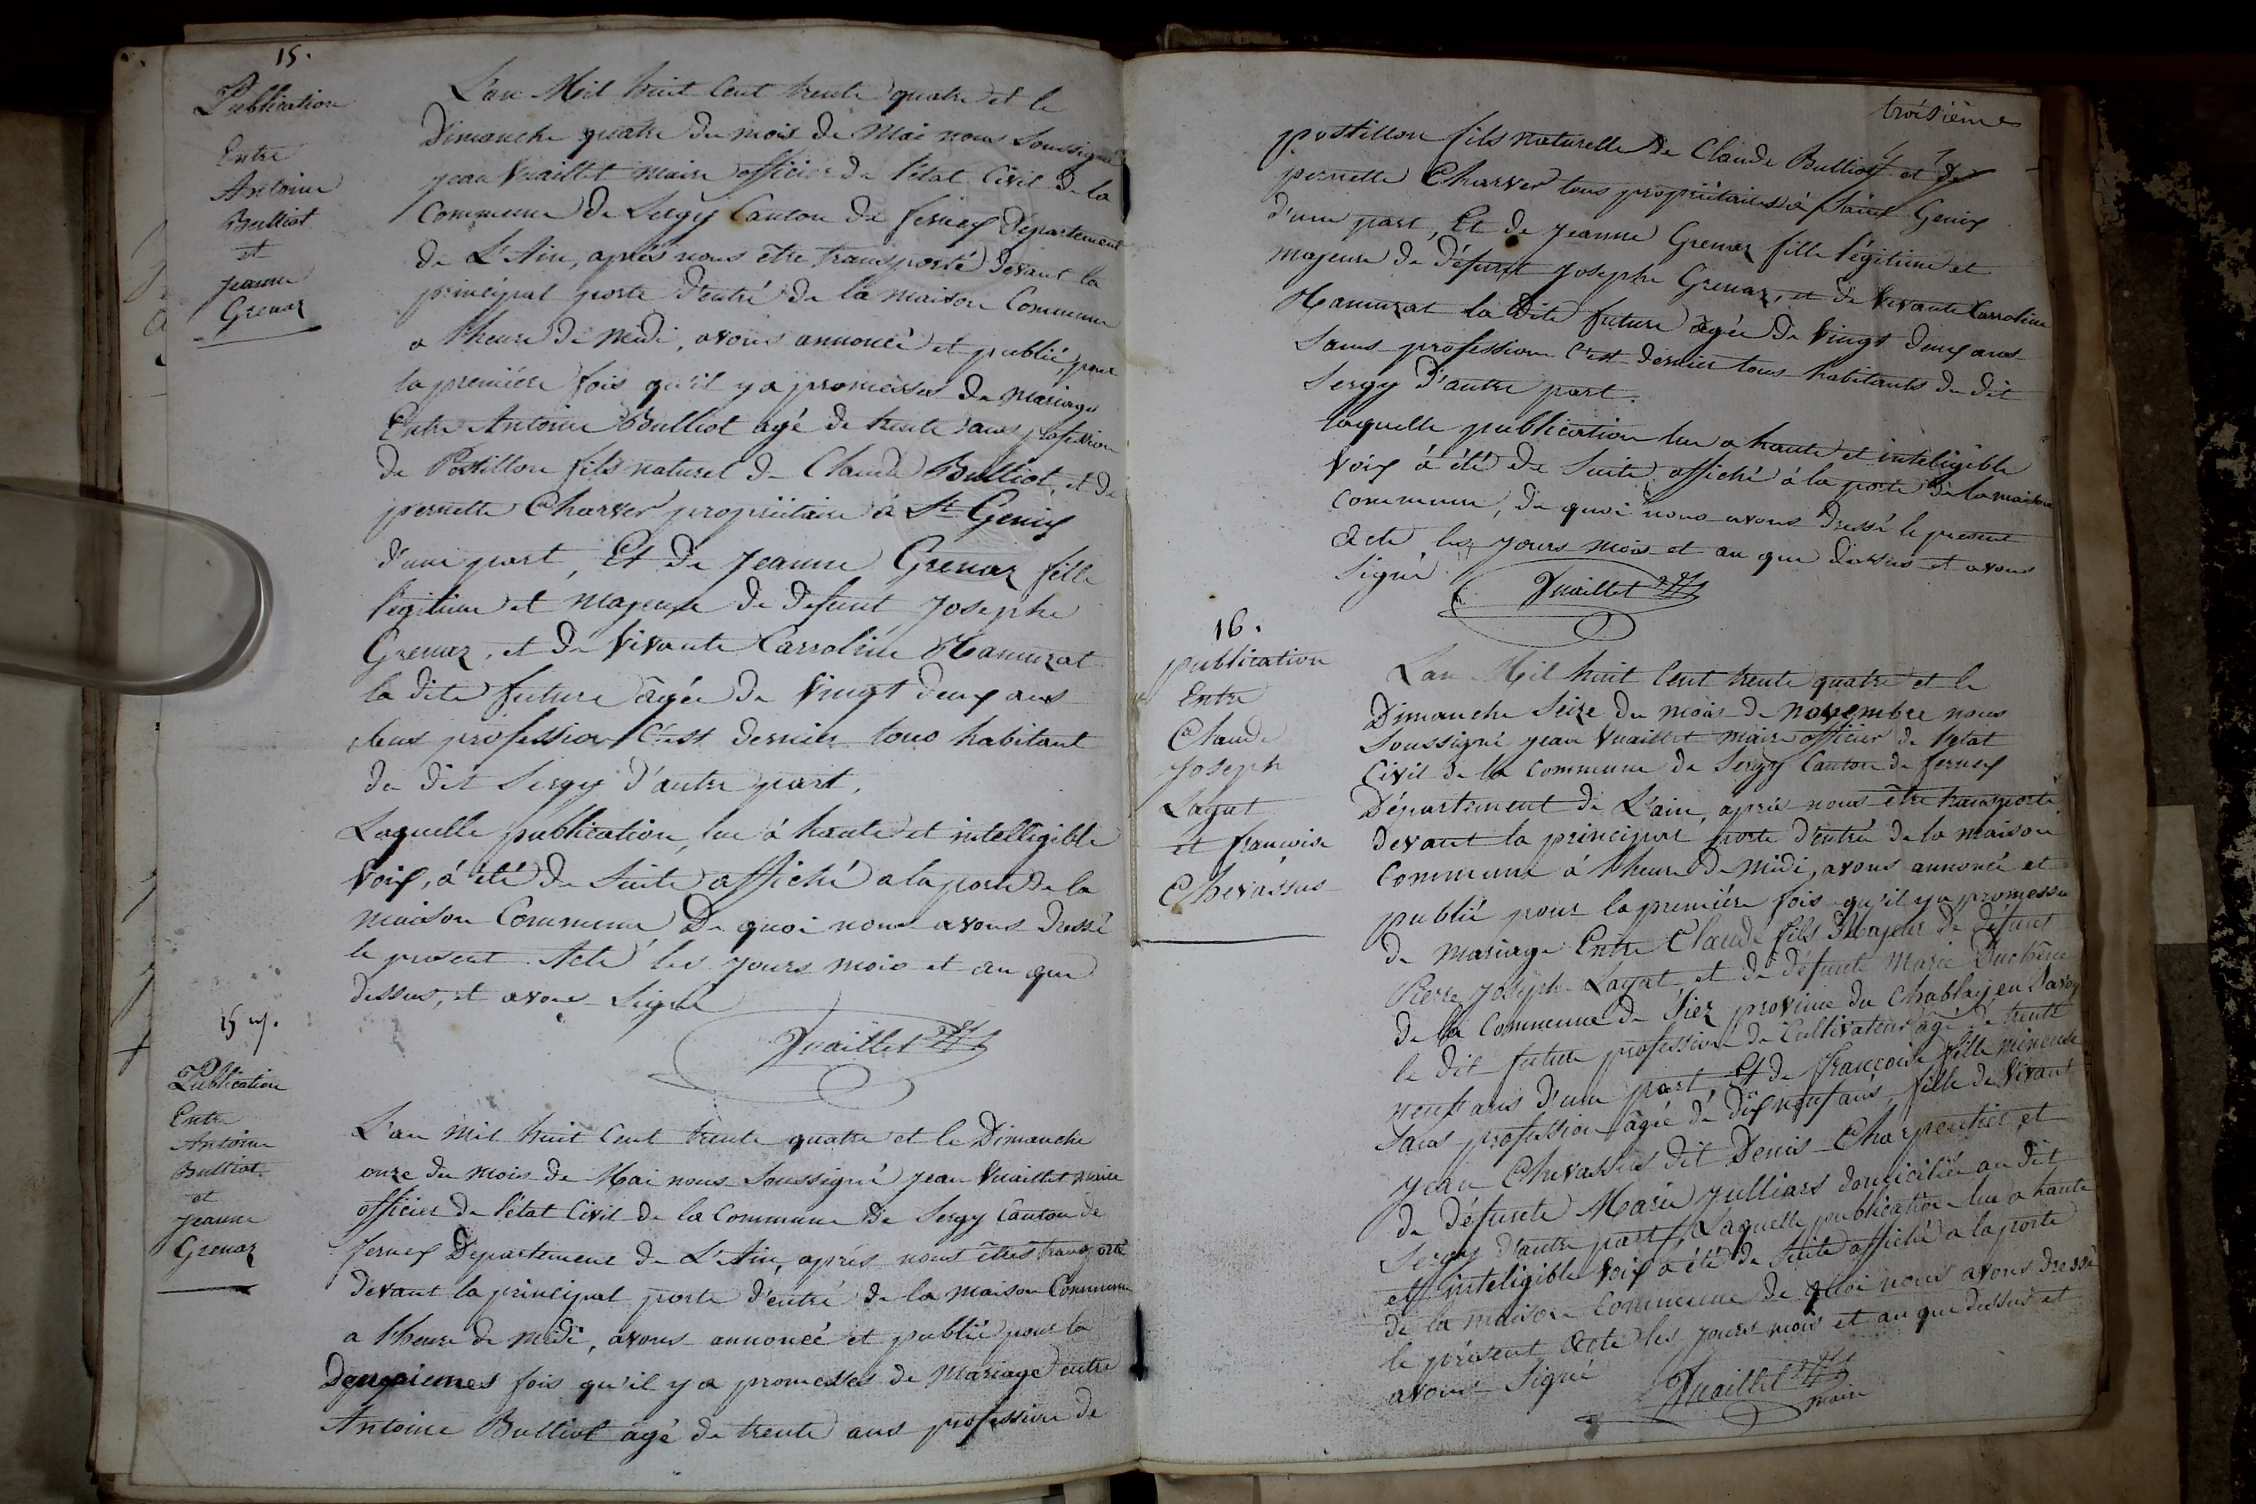 15.
Publication
Entre
Antoine
Bulliot
et
Jeanne
Grenaz
L'an Mil huit Cent trente quatre et le
Dimanche quatre du mois de Mai nous Soussigné
jean Vuaillet maire officier de l'état Civil de la
Commune de Sergy Canton de ferney Département
de L'Ain, après nous être transporté devant la
principal porte d'entré de la maison Commune
a l'heure de midi, avons annoncé et publié, pour
la première fois qu'il y a promesses de mariage
Entre Antoine Bulliot agé de trente ans profession
de Postillon fils naturel de Claude Bulliot, et de
pernette Charver propriétaire à St Genix
d'une part, Et de Jeanne Grenaz fille
légitime et majeure de defunt Josephe
Grenaz, et de Vivante Carroline Mamuzat
la dite future âgée de Vingt deux ans
sans profession C'est dernier tous habitant
du dit Sergy d'autre part.
Laquelle publication, lue à haute et intelligible
Voix, à été de Suite affiché a la porte de la
maison Commune De quoi nous avons dressé
le present Acte les jours mois et an que
dessus, et avons Signé
Vuaillet
15 bis.
Publication
Entre
Antoine
Bulliot
et
Jeanne
Grenaz
L'an mil huit Cent trente quatre et le Dimanche
onze du mois de Mai nous Soussigné jean Vuaillet maire
officier de l'état Civil de la Commune de Sergy Canton de
ferney Departement de L'Ain, après nous êtres transporté
devant la principal porte d'entré de la maison Commune
a l'heure de midi, avons annoncé et publié pour la
Deuxiemes fois qu'il y a promesses de mariage entre
Antoine Bulliot agé de trente ans profession de
troisième
postillon fils naturelle de Claude Bulliot et de
pernette Charver tous propriétaires à Saint Genix
d'une part, Et de Jeanne Grenaz fille légitime et
majeure de défunt Josephe Grenaz, et de Vivante Carroline
Mamuzat la dite future âgée de Vingt deux ans
Sans profession C'est dernier tous habitants du dit
Sergy d'autre part.
laquelle publication lue a haute et inteligible
Voix à été de Suite affiché à la porte de la maison
Commune, de quoi nous avons dressé le présent
Acte les jours mois et an que dessus et avons
Signé
Vuaillet
16.
publication
Entre
Claude
Joseph
Layat
et francoise
Chevassus
L'an Mil huit Cent trente quatre et le
Dimanche Seize du mois de novembre nous
Soussigné jean Vuaillet maire officier de l'etat
Civil de la Commune de Sergy Canton de ferney
Département de L'ain, après nous être transporté
devant la principal porte d'entrée de la maison
Commune à l'heure de midi, avons annoncé et
publié pour la première fois qu'il y a promesse
de mariage Entre Claude fils Majeur de défunt
Pierre Joseph Layat et de défunte Marie Duchêne
de la Commune de province du Chablay en Savoy
le dit futur profession de Cultivateur agé de trente
neuf ans d'une part, Et de françoise fille mineure
Sans profession âgée de dix neuf ans, fille de Vivant
Jean Chevassus dit Denis Charpentier et
de défunte Marie Julliars domicilié au dit
Sergy d'autre part, Laquelle publication lue a haute
et inteligible Voix à été de Suite affiché a la porte
de la maison Commune de quoi nous avons dressé
le présent Acte les jours mois et an que dessus et
avons Signé
Vuaillet
maire